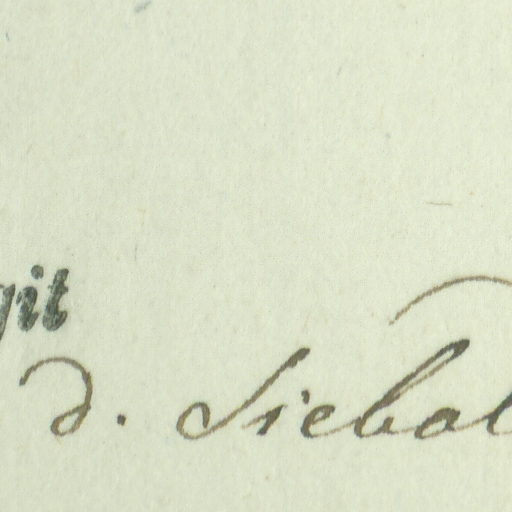 git
d. Siebol